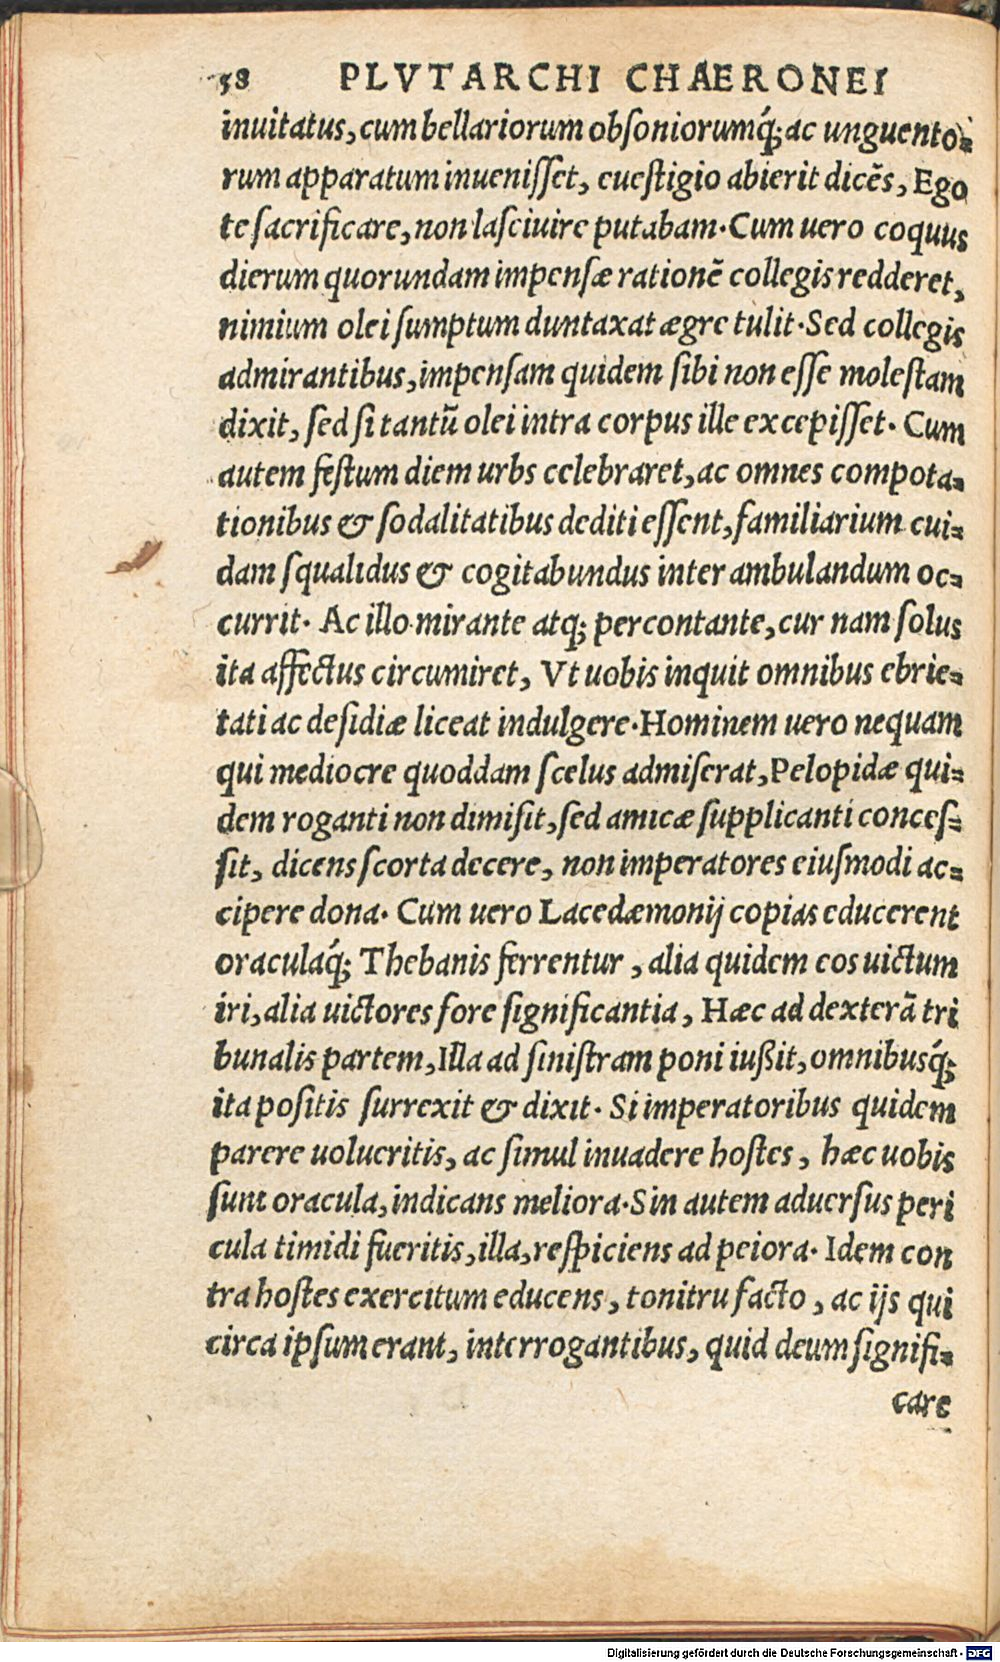 58 PLVTARCHI CHAERONEI
inuitatus, cum bellariorum obsoniorumq́; ac unguento-
rum apparatum inuenisset, euestigio abierit dicēs, Ego
te sacrificare, non lasciuire putabam. Cum uero coquus
dierum quorundam impensæ rationē collegis redderet,
nimium olei sumptum duntaxat ægre tulit. Sed collegis
admirantibus, impensam quidem sibi non esse molestam
dixit, sed si tantū olei intra corpus ille excepisset. Cum
autem festum diem urbs celebraret, ac omnes compota-
tionibus & sodalitatibus dediti essent, familiarium cui-
dam squalidus & cogitabundus inter ambulandum oc-
currit. Ac illo mirante atq; percontante, cur nam solus
ita affectus circumiret, Vt uobis inquit omnibus ebrie-
tati ac desidiæ liceat indulgere. Hominem uero nequam
qui mediocre quoddam scelus admiserat, Pelopidæ qui-
dem roganti non dimisit, sed amicæ supplicanti conces-
sit, dicens scorta decere, non imperatores eiusmodi ac-
cipere dona. Cum uero Lacedæmonij copias educerent
oraculaq́; Thebanis ferrentur, alia quidem eos uictum
iri, alia uictores fore significantia, Hæc ad dexterā tri
bunalis partem, Illa ad sinistram poni iußit, omnibusq́;
ita positis surrexit & dixit. Si imperatoribus quidem
parere uolueritis, ac simul inuadere hostes, hæc uobis
sunt oracula, indicans meliora. Sin autem aduersus peri
cula timidi fueritis, illa, respiciens ad peiora. Idem con
tra hostes exercitum educens, tonitru facto, ac ijs qui
circa ipsum erant, interrogantibus, quid deum signifi-
care
Digitalisierung gefördert durch die Deutsche Forschungsgemeinschaft - DFG